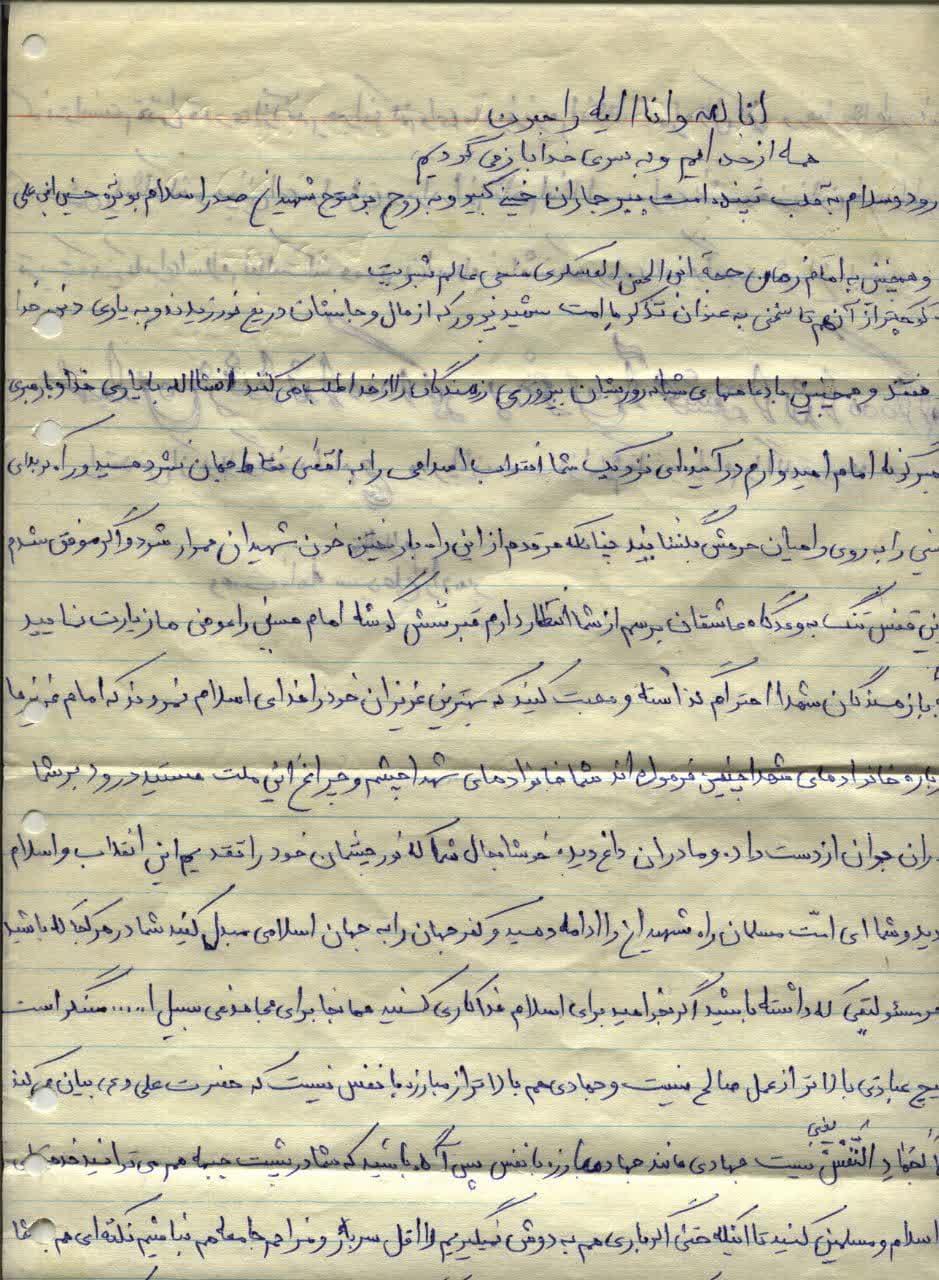 انا لله وانا الیه راجعون
همه از خدائیم و به سوی خدا باز می گردیم
رود وسلام به قلب تپنده امت پیر جماران خمینی کبیر و به روح پر فتوح شهیدان صدر اسلام بویژه حسین ابن علی
و همچنین به امام زمان حجة ابن الحسن العسکری منجی عالم بشریت
کوچکتر از آنم تا سخنی به عنوان تذکر با امت شهید پرور که از مال و جانشان دریغ نورزیدند و به یاری دین خدا
و همچنین با دعاهای شبانه روزیشان پیروزی رزمندگان را از خدا طلب می کنند انشاالله با یاری خدا و با رهبری
پیامبر گونه امام امیدوارم در آینده ای نزدیک شما انقلاب اسلامی را به اقصی نقاط جهان نشر دهید و راه کربلای
را به روی راهیان حرمش بگشایید چنانکه هر قدم از این راه با ریختن خون شهیدان هموار شود و اگر موفق شدم
این قفس تنگ به وعدگاه عاشقان برسم از شما انتظار دارم قبر شش گوشه امام حسین را عوض ما زیارت نمایید
به بازماندگان شهدا احترام گذاشته و محبت کنید که بهترین عزیزان خود را فدای اسلام نمودند که امام عزیز ما
درباره خانواده های شهدا چنین فرموده اند شما خانواده های شهدا چشم و چراغ این ملت هستید درود بر شما
پدران جوان از دست داده و مادران داغ دیده خوشا بحال شما که نور چشمان خود را تقدیم این انقلاب و اسلام
و شما ای امّت مسلمان راه شهیدان را ادامه دهید و کفر جهان را به جهان اسلامی مبدل کنید شما در هر کجا که باشید
هر مسئولیتی که داشته باشید اگر بخواهید برای اسلام فداکاری کنید همانجا برای مجاهد فی سبیل ا..... سنگر است
هیچ عبادتی بالاتر از عمل صالح نیست و جهادی هم بالاتر از مبارزه با نفس نیست که حضرت علی (ع) بیان می کند
کَجهادِ النَّفْسْ یعنی نیست جهادی مانند جهاد مبارزه با نفس پس آگاه باشید که شما در پشت جبهه هم می توانید خدمت به
اسلام و مسلمین کنید تا اینکه حتی اگر باری هم به دوش نمیگیریم لااقل سربار و مزاحم جامعه هم نباشیم نکته ای هم با شما